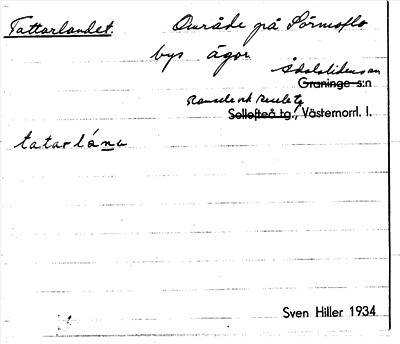 Tattarlandet. Område på Sörmoflo
bys ägor
Ådalslidens sn
Graninge s:n
Ramsele och Resele tg
Sollefteå tg., Västernorrl. l.
tatarlána
Sven Hiller 1934